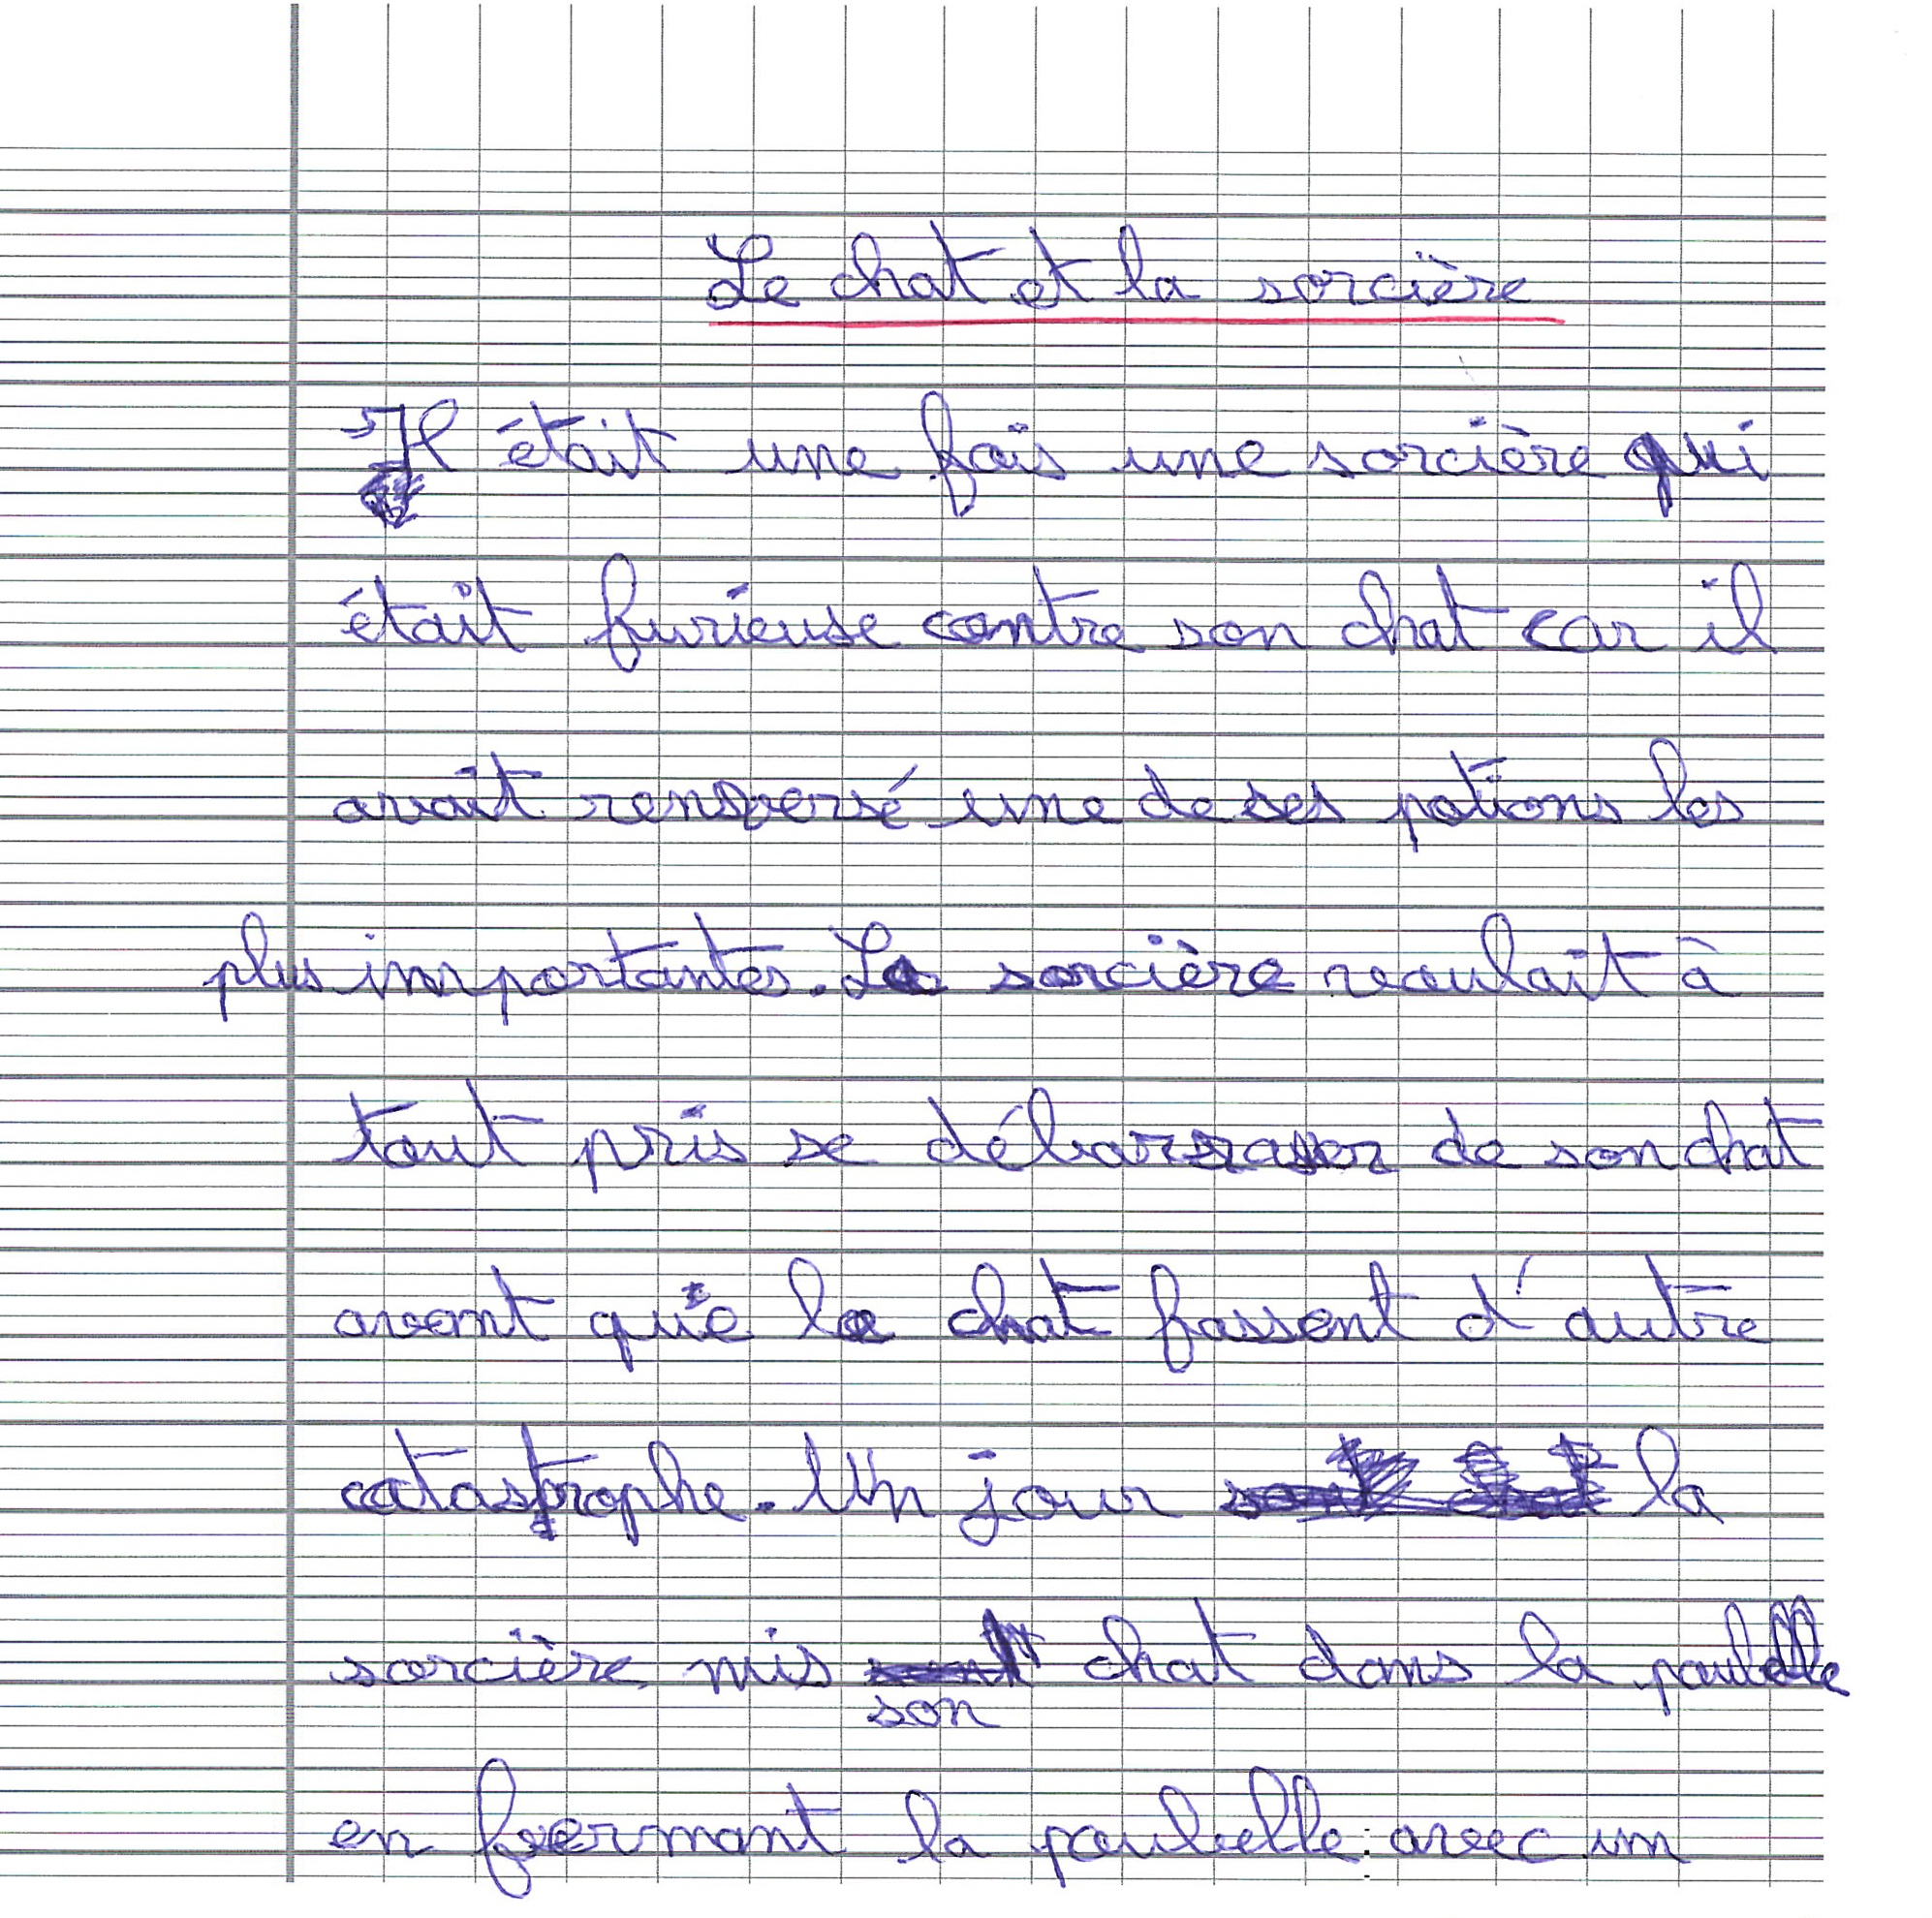 Le chat et la sorcière
Il était une fois une sorcière qui
était furieuse contre son chat car il
avait renversé une de ses potions les
plus importantes. La sorcière voulait à
tout pris se débarrasser de son chat
avant que le chat fassent d'autre
catastrophe. Un jour la
sorcière mis son chat dans la poubelle
en fermant la poubelle avec un